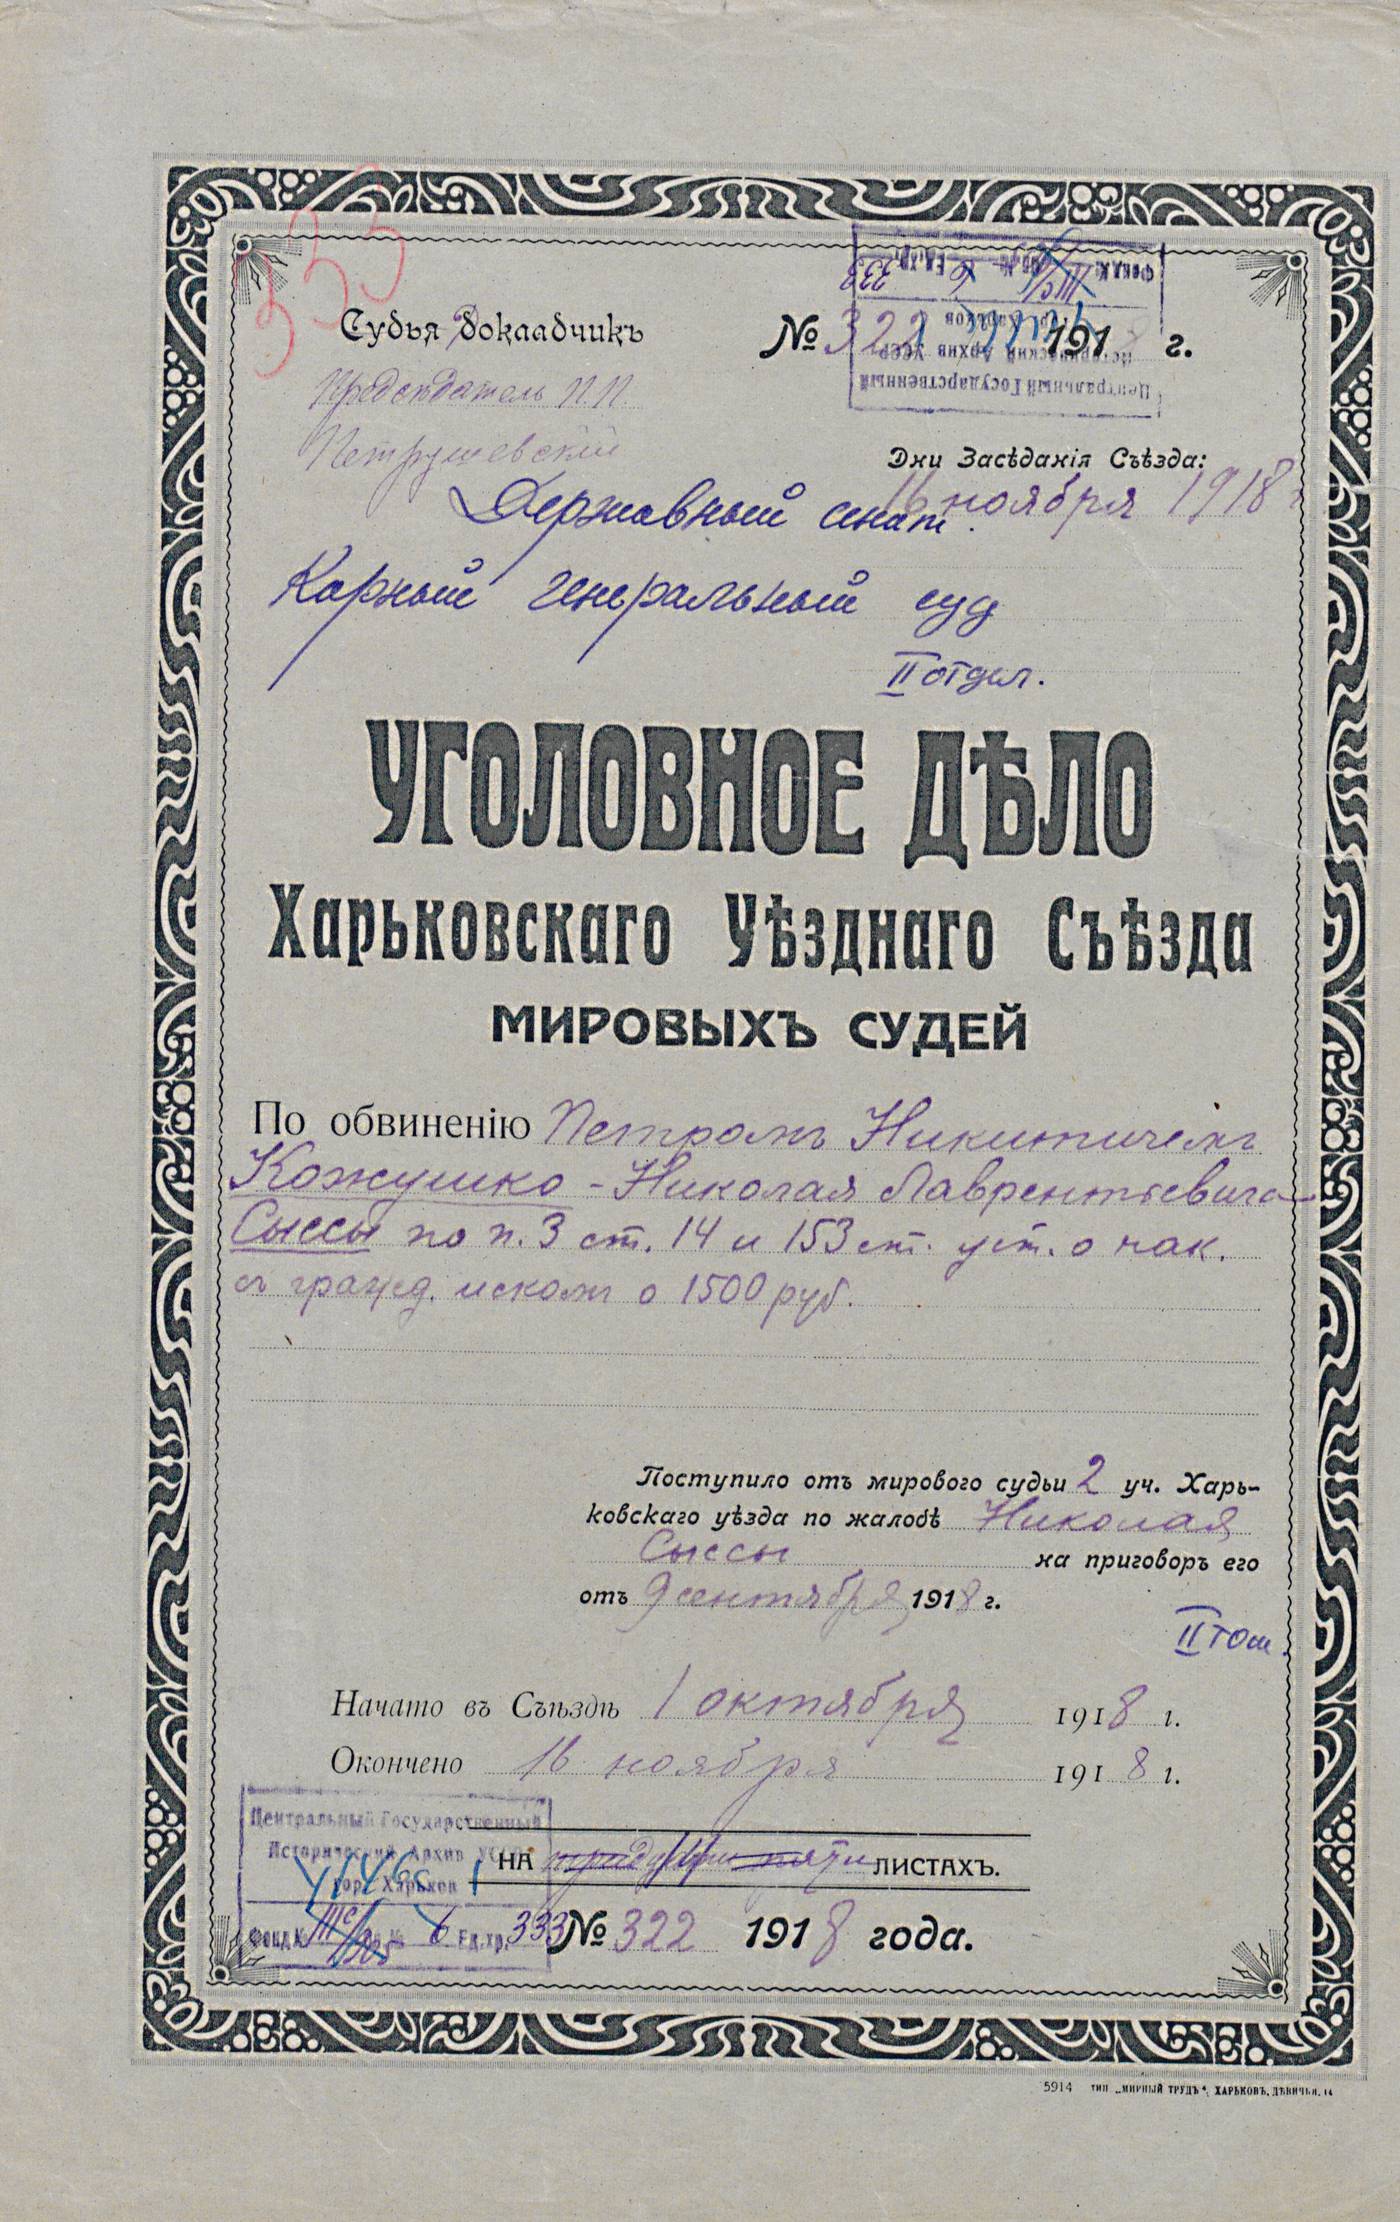 333
Судья докладчикъ
№ 322 1918 г.
Предсѣдатель П.П.
Петрушевскій
Центральный Государственный
Исторический Архив УССР
гор. Харьков
Фонд № Оп. № 6 Ед.хр. 333
Дни Засѣданія Съѣзда:
16 ноября 1918 г
Державный сенат.
Карный генеральный суд
II отдел.
УГОЛОВНОЕ ДѢЛО
Харьковскаго Уѣзднаго Съѣзда
МИРОВЫХЪ СУДЕЙ
По обвиненію Петромъ Никитичемъ
Кожушко - Николая Лаврентьевича
Сыссы по п. 3 ст. 14 и 153 ст. уст. о нак.
съ гражд. искомъ о 1500 руб.
Поступило отъ мирового судьи 2 уч. Харь-
ковскаго уѣзда по жалобѣ Николая
Сыссы на приговоръ его
отъ 9 сентября 1918 г.
II том.
Начато въ Съѣздѣ 1 октября 1918 г.
Окончено 16 ноября 1918 г.
Центральный Государственный
Исторический Архив УССР
гор. Харьков
НА ЛИСТАХЪ.
Фонд № Оп. № 6 Ед.хр. 333
№ 322 1918 года.
5914 ТИП. „МИРНЫЙ ТРУДЪ“, ХАРЬКОВЪ, ДѢВИЧЬЯ, 14